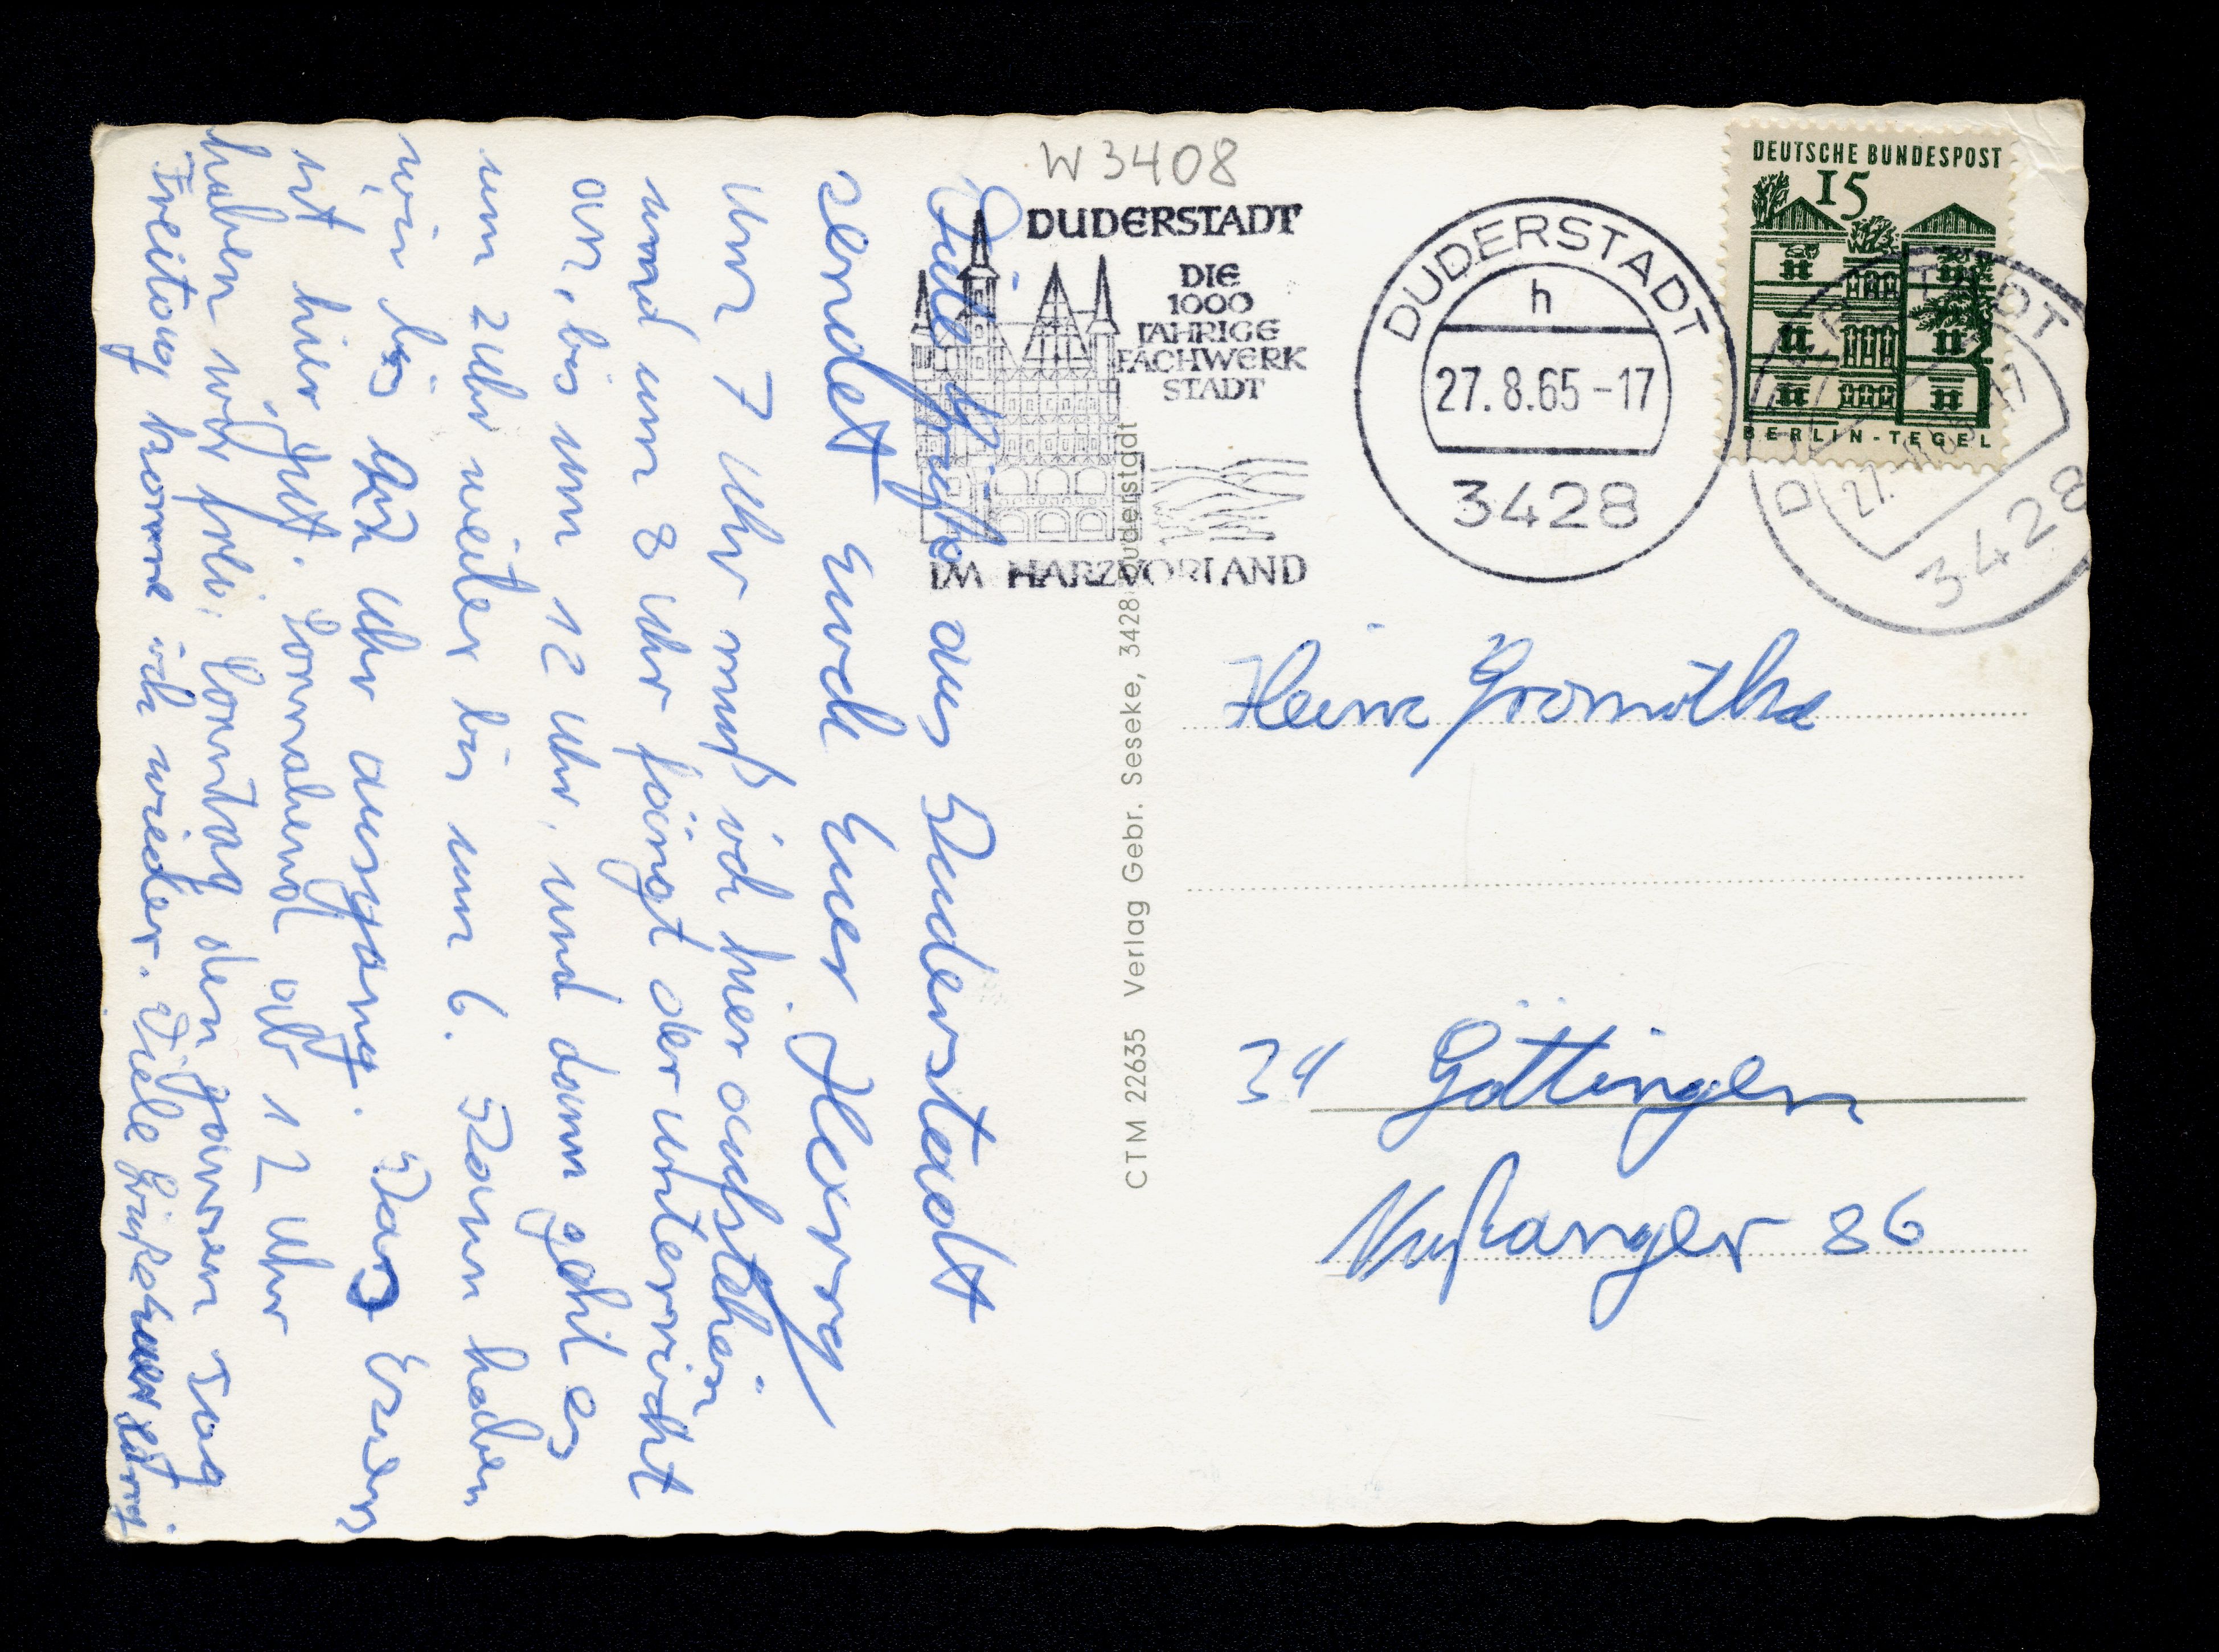 W 3408
DUDERSTADT
DIE
1000
JÄHRIGE
FACHWERK
STADT
IM HARZVORLAND
DUDERSTADT
h
27.8.65-17
3428
DEUTSCHE BUNDESPOST
15
BERLIN-TEGEL
DUDERSTADT
27.
3428
Viele Grüße aus Duderstadt
sendet Euch Euer
Um 7 Uhr muß ich hier aufstehen
und um 8 Uhr fängt der Unterricht
an, bis um 12 Uhr, und dann geht es
um 2 Uhr weiter bis um 6. Dann haben
wir bis Uhr ausgang. Das Essen
ist hier gut. Sonnabend ab 12 Uhr
haben wir frei. Sonntag den ganzen Tag
Freitag komme ich wieder. Viele Grüße euer
CTM 22635 Verlag Gebr. Seseke, 3428 Duderstadt
Heinz
34 Göttingen
Nußanger 86